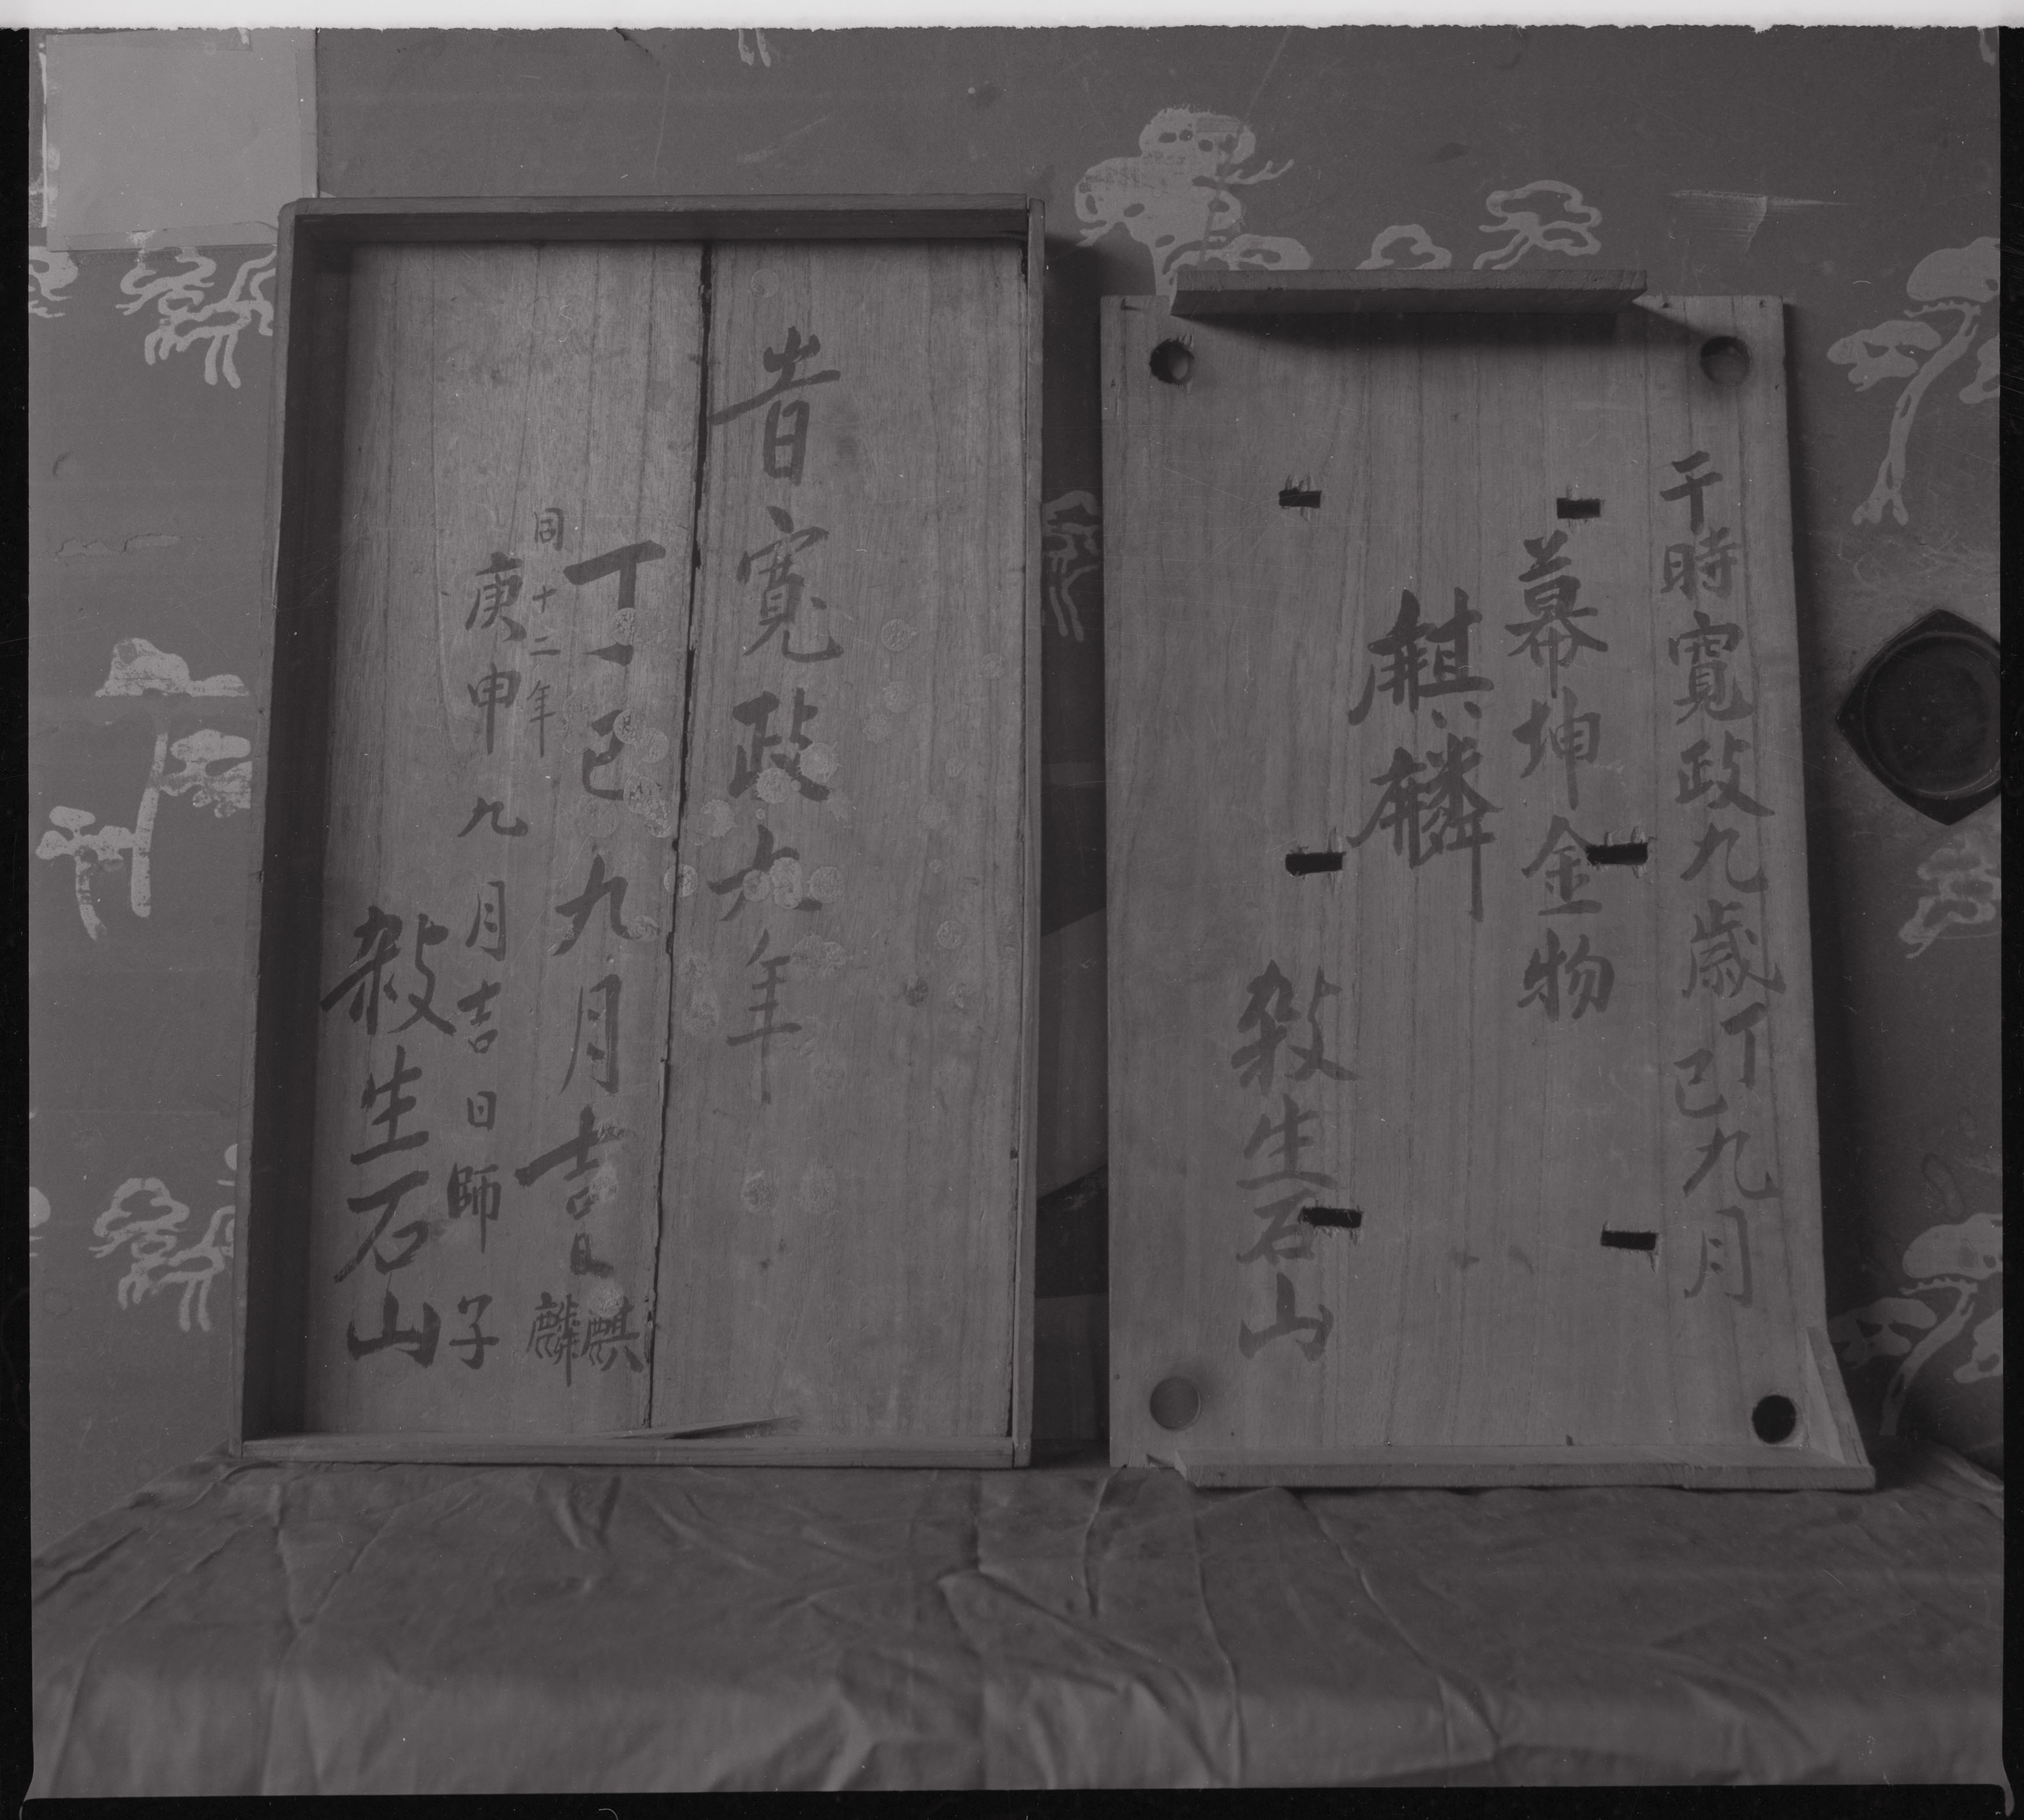 于時寛政九歳丁巳九月
幕坤金物
麒麟
殺生石山
昔寛政九年
丁巳九月吉日麒麟
同十二年
庚申九月吉日師子
殺生石山